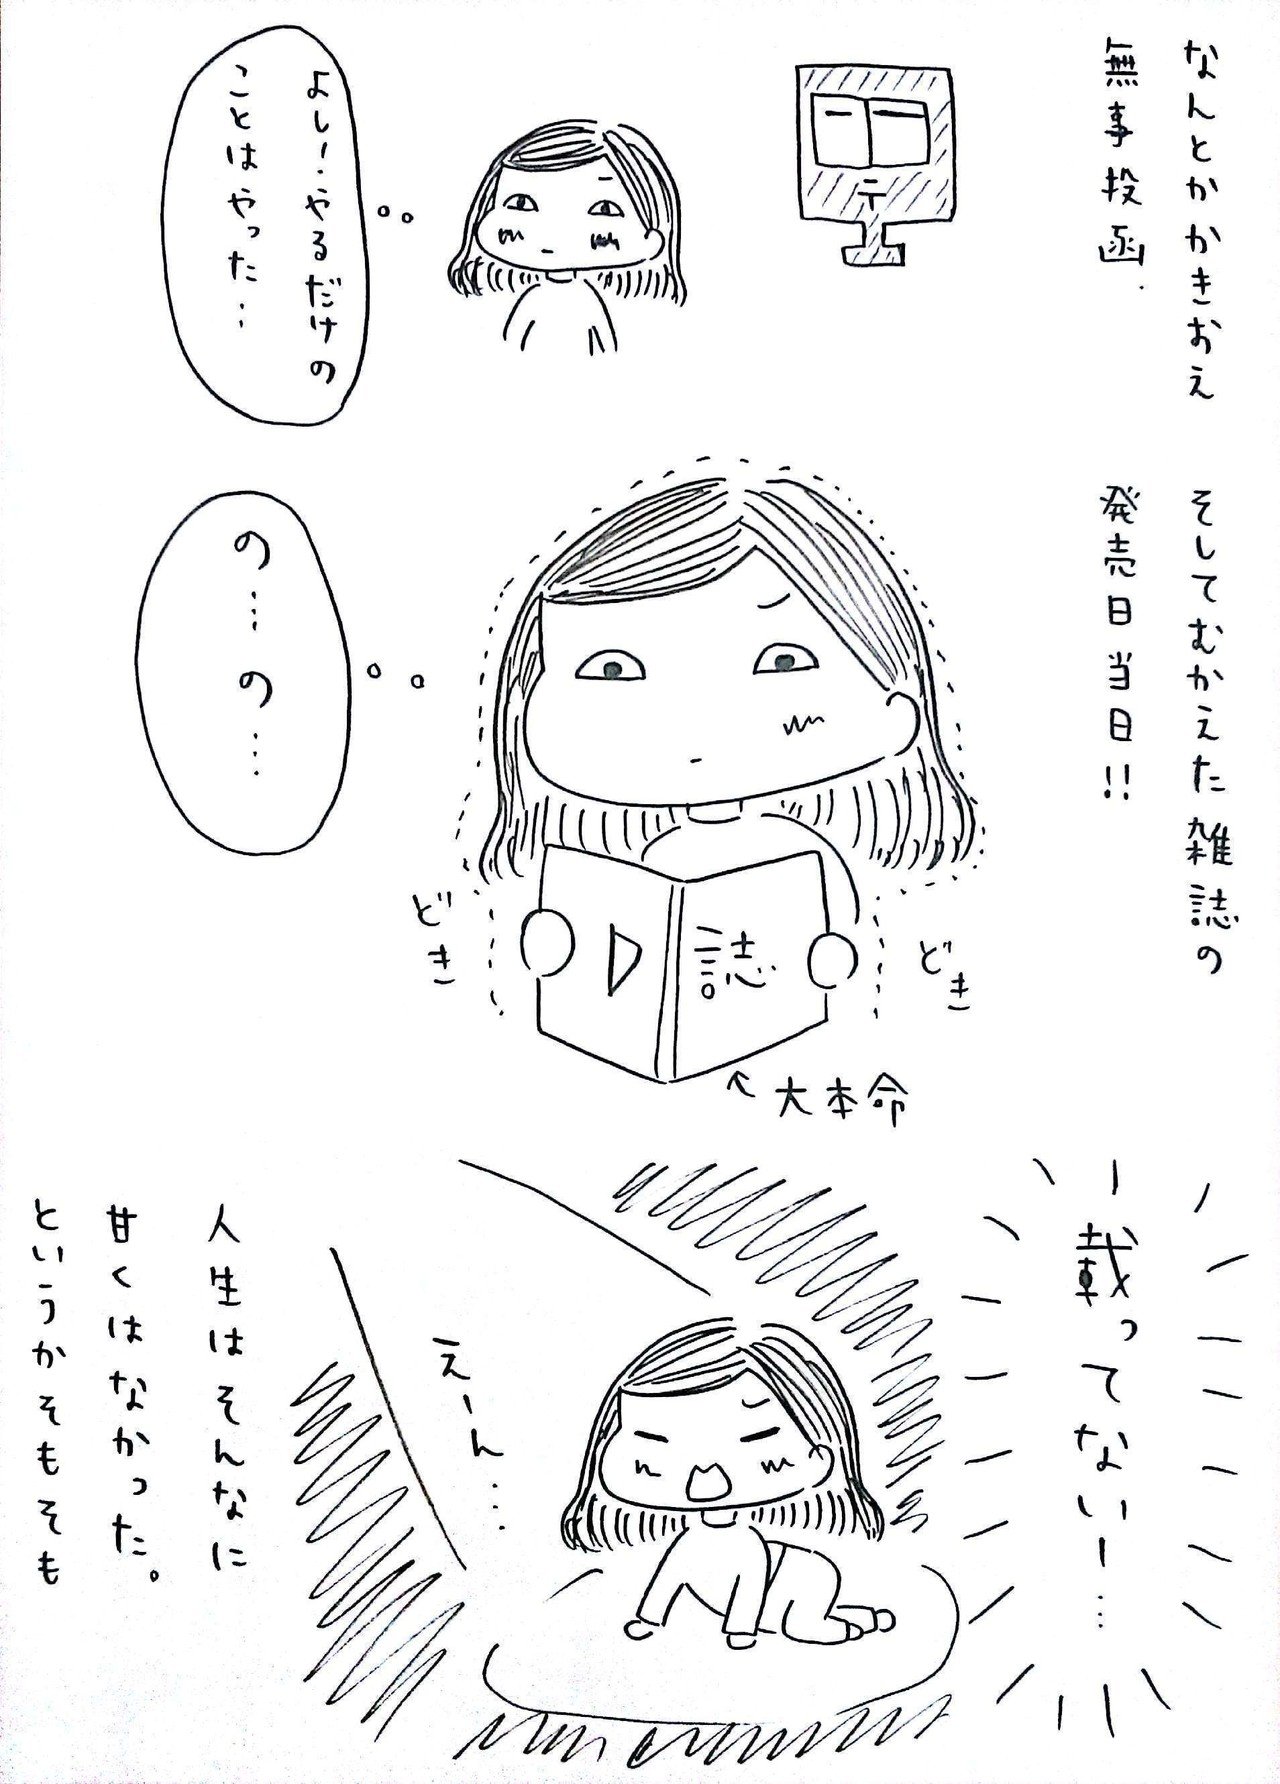 なんとかかきおえ
無事投函.
〒
よし!やるだけの
ことはやった…
そしてむかえた雑誌の
発売日当日!!
の…の…
どき
どき
誌
←大本命
載ってないー…
えーん…
人生はそんなに
甘くはなかった。
というかそもそも